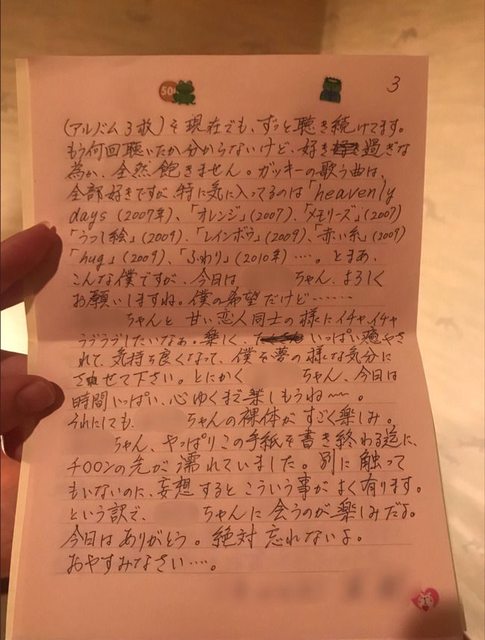 3
(アルバム3枚)を現在でも、ずっと聴き続けてます。
もう何回聴いたか分からないけど、好き過ぎな
為か、全然飽きません。ガッキーの歌う曲は、
全部好きですが、特に気に入ってるのは「heavenly
days(2007年)、「オレンジ」(2007)、「メモリーズ」(2007)
「うつし絵」(2009)、「レインボウ」(2009)、「赤い糸」(2009)
「hug」(2009)、「ふわり」(2010年)‥‥。とまあ、
こんな僕ですが、今日は ちゃん、よろしく
お願いしますね。僕の希望だけど‥‥‥‥
ちゃんと 甘い恋人同士の様にイチャ、イチャ
ラブラブしたいなぁ。楽しく、いっぱい癒やさ
れて、気持ち良くなって、僕を夢の様な気分に
させて下さい。とにかく ちゃん、今日は
時間いっぱい、心ゆくまで楽しもうね〜。
それにしても、 ちゃんの裸体がすごく楽しみ。
ちゃん、やっぱりこの手紙を書き終わる迄に、
チ〇〇ンの先が濡れていました。別に触って
もいないのに、妄想するとこういう事がよく有ります。
という訳で、 ちゃんに会うのが楽しみだよ。
今日はありがとう。絶対忘れないよ。
おやすみなさい‥‥。